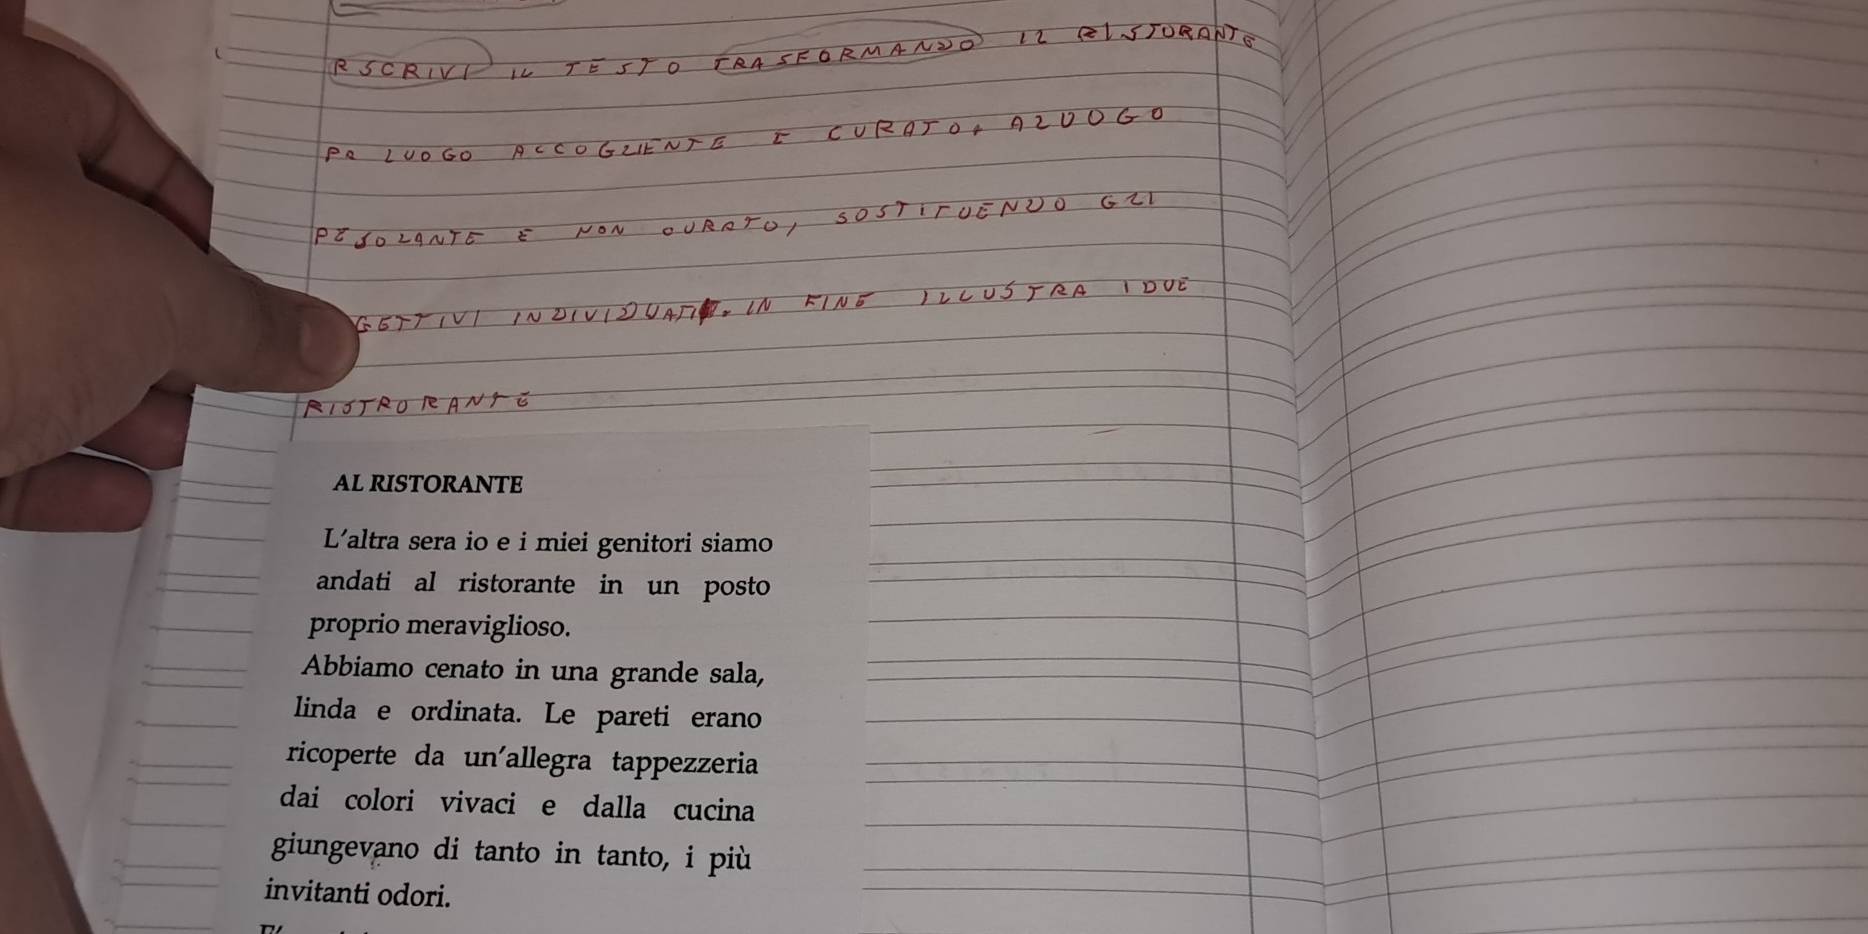 RSCRIVI IL TESTO TRASFORMANDO IL RISTORANTE
DA LUOGO ACCOGLIENTE E CURATO, A LUOGO
DESOLANTE E NON CURATO, SOSTITUENDO GLI
GETTIVI INDIVIDUATI. IN FINE ILLUSTRA I DUE
RISTRORANTE
AL RISTORANTE
L'altra sera io e i miei genitori siamo
andati al ristorante in un posto
proprio meraviglioso.
Abbiamo cenato in una grande sala,
linda e ordinata. Le pareti erano
ricoperte da un'allegra tappezzeria
dai colori vivaci e dalla cucina
giungevano di tanto in tanto, i più
invitanti odori.